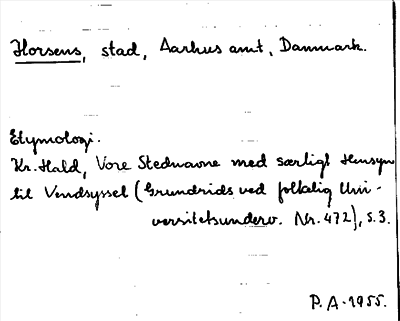 Horsens, stad, Aarhus amt, Danmark.
Etymologi.
Kr. Hald, Vore Stednavne med særligt Hensyn
til Vendsyssel (Grundrids ved folkelig Uni-
versitetsunderv. Nr. 472), s. 3.
P. A. 1955.